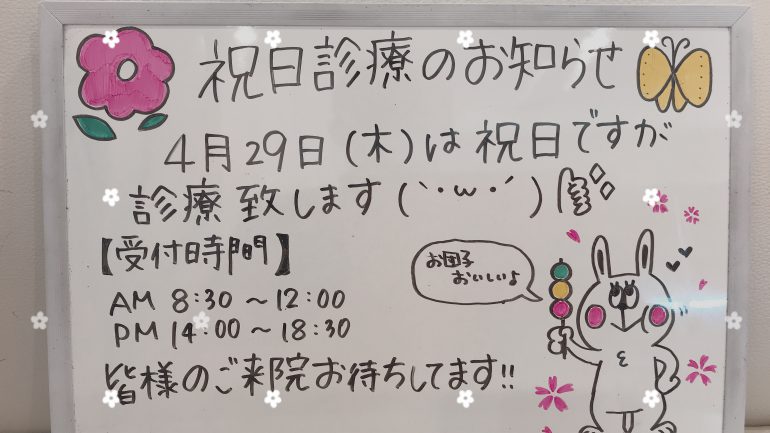 祝日診療のお知らせ
4月29日(木)は祝日ですが
診療致します(｀･ω･´)
【受付時間】
AM 8:30 ～ 12:00
PM 14:00 ～ 18:30
皆様のご来院お待ちしてます!!
お団子
おいしいよ